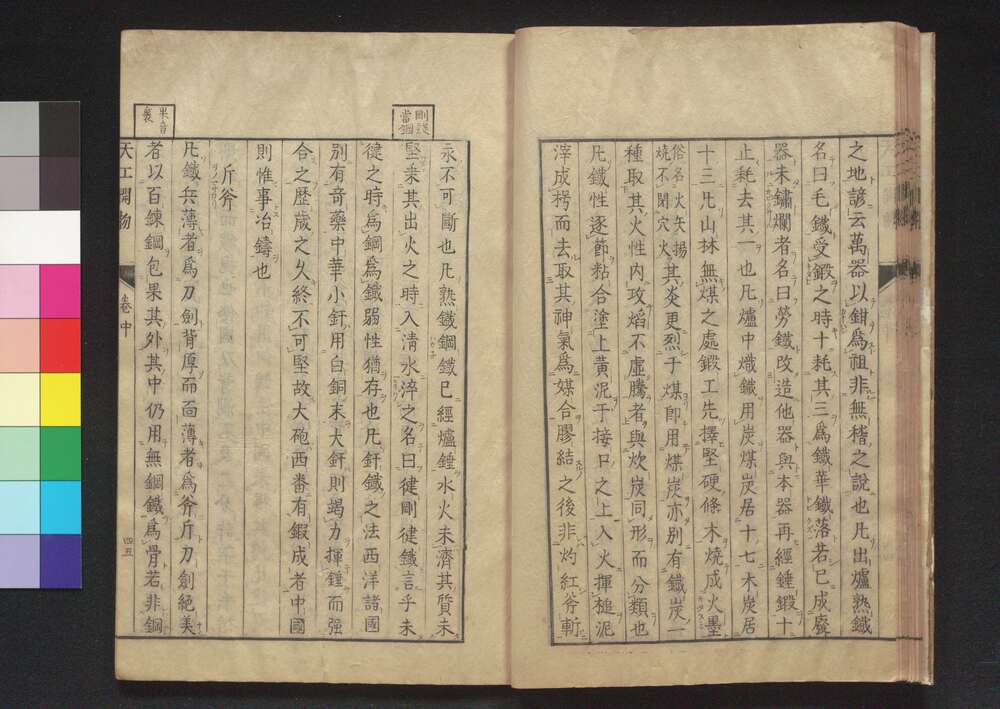 之地諺云萬器以鉗爲祖非無稽之說也凡出爐熟鐵
名曰毛鐵受鍛之時十耗其三爲鐵華鐵落若已成廢
器未鏽爛者名曰勞鐵改造他器與本器再經錘鍛十
止耗去其一也凡爐中熾鐵用炭煤炭居十七木炭居
十三凡山林無煤之處鍛工先擇堅硬條木燒成火墨
俗名火矢揚
燒不閉穴火
其炎更烈于煤卽用煤炭亦別有鐵炭一
種取其火性內攻焰不虛騰者與炊炭同形而分類也
凡鐵性逐節粘合塗上黃泥于接口之上入火揮槌泥
滓成枵而去取其神氣爲媒合膠結之後非灼紅斧斬
剛淺
當鋼
永不可斷也凡熟鐵鋼鐵已經爐錘水火未濟其質未
堅乘其出火之時入清水淬之名曰健剛健鐵言乎未
健之時爲鋼爲鐵弱性猶存也凡釬鐵之法西洋諸國
別有奇藥中華小釬用白銅末大釬則竭力揮錘而强
合之歷歲之久終不可堅故大砲西番有鍛成者中國
則惟事冶鑄也
斤斧
果音
裹
凡鐵兵薄者爲刀劍背厚而面薄者爲斧斤刀劍絕美
者以百鍊鋼包果其外其中仍用無鋼鐵爲骨若非鋼
天工開物
卷中
四五